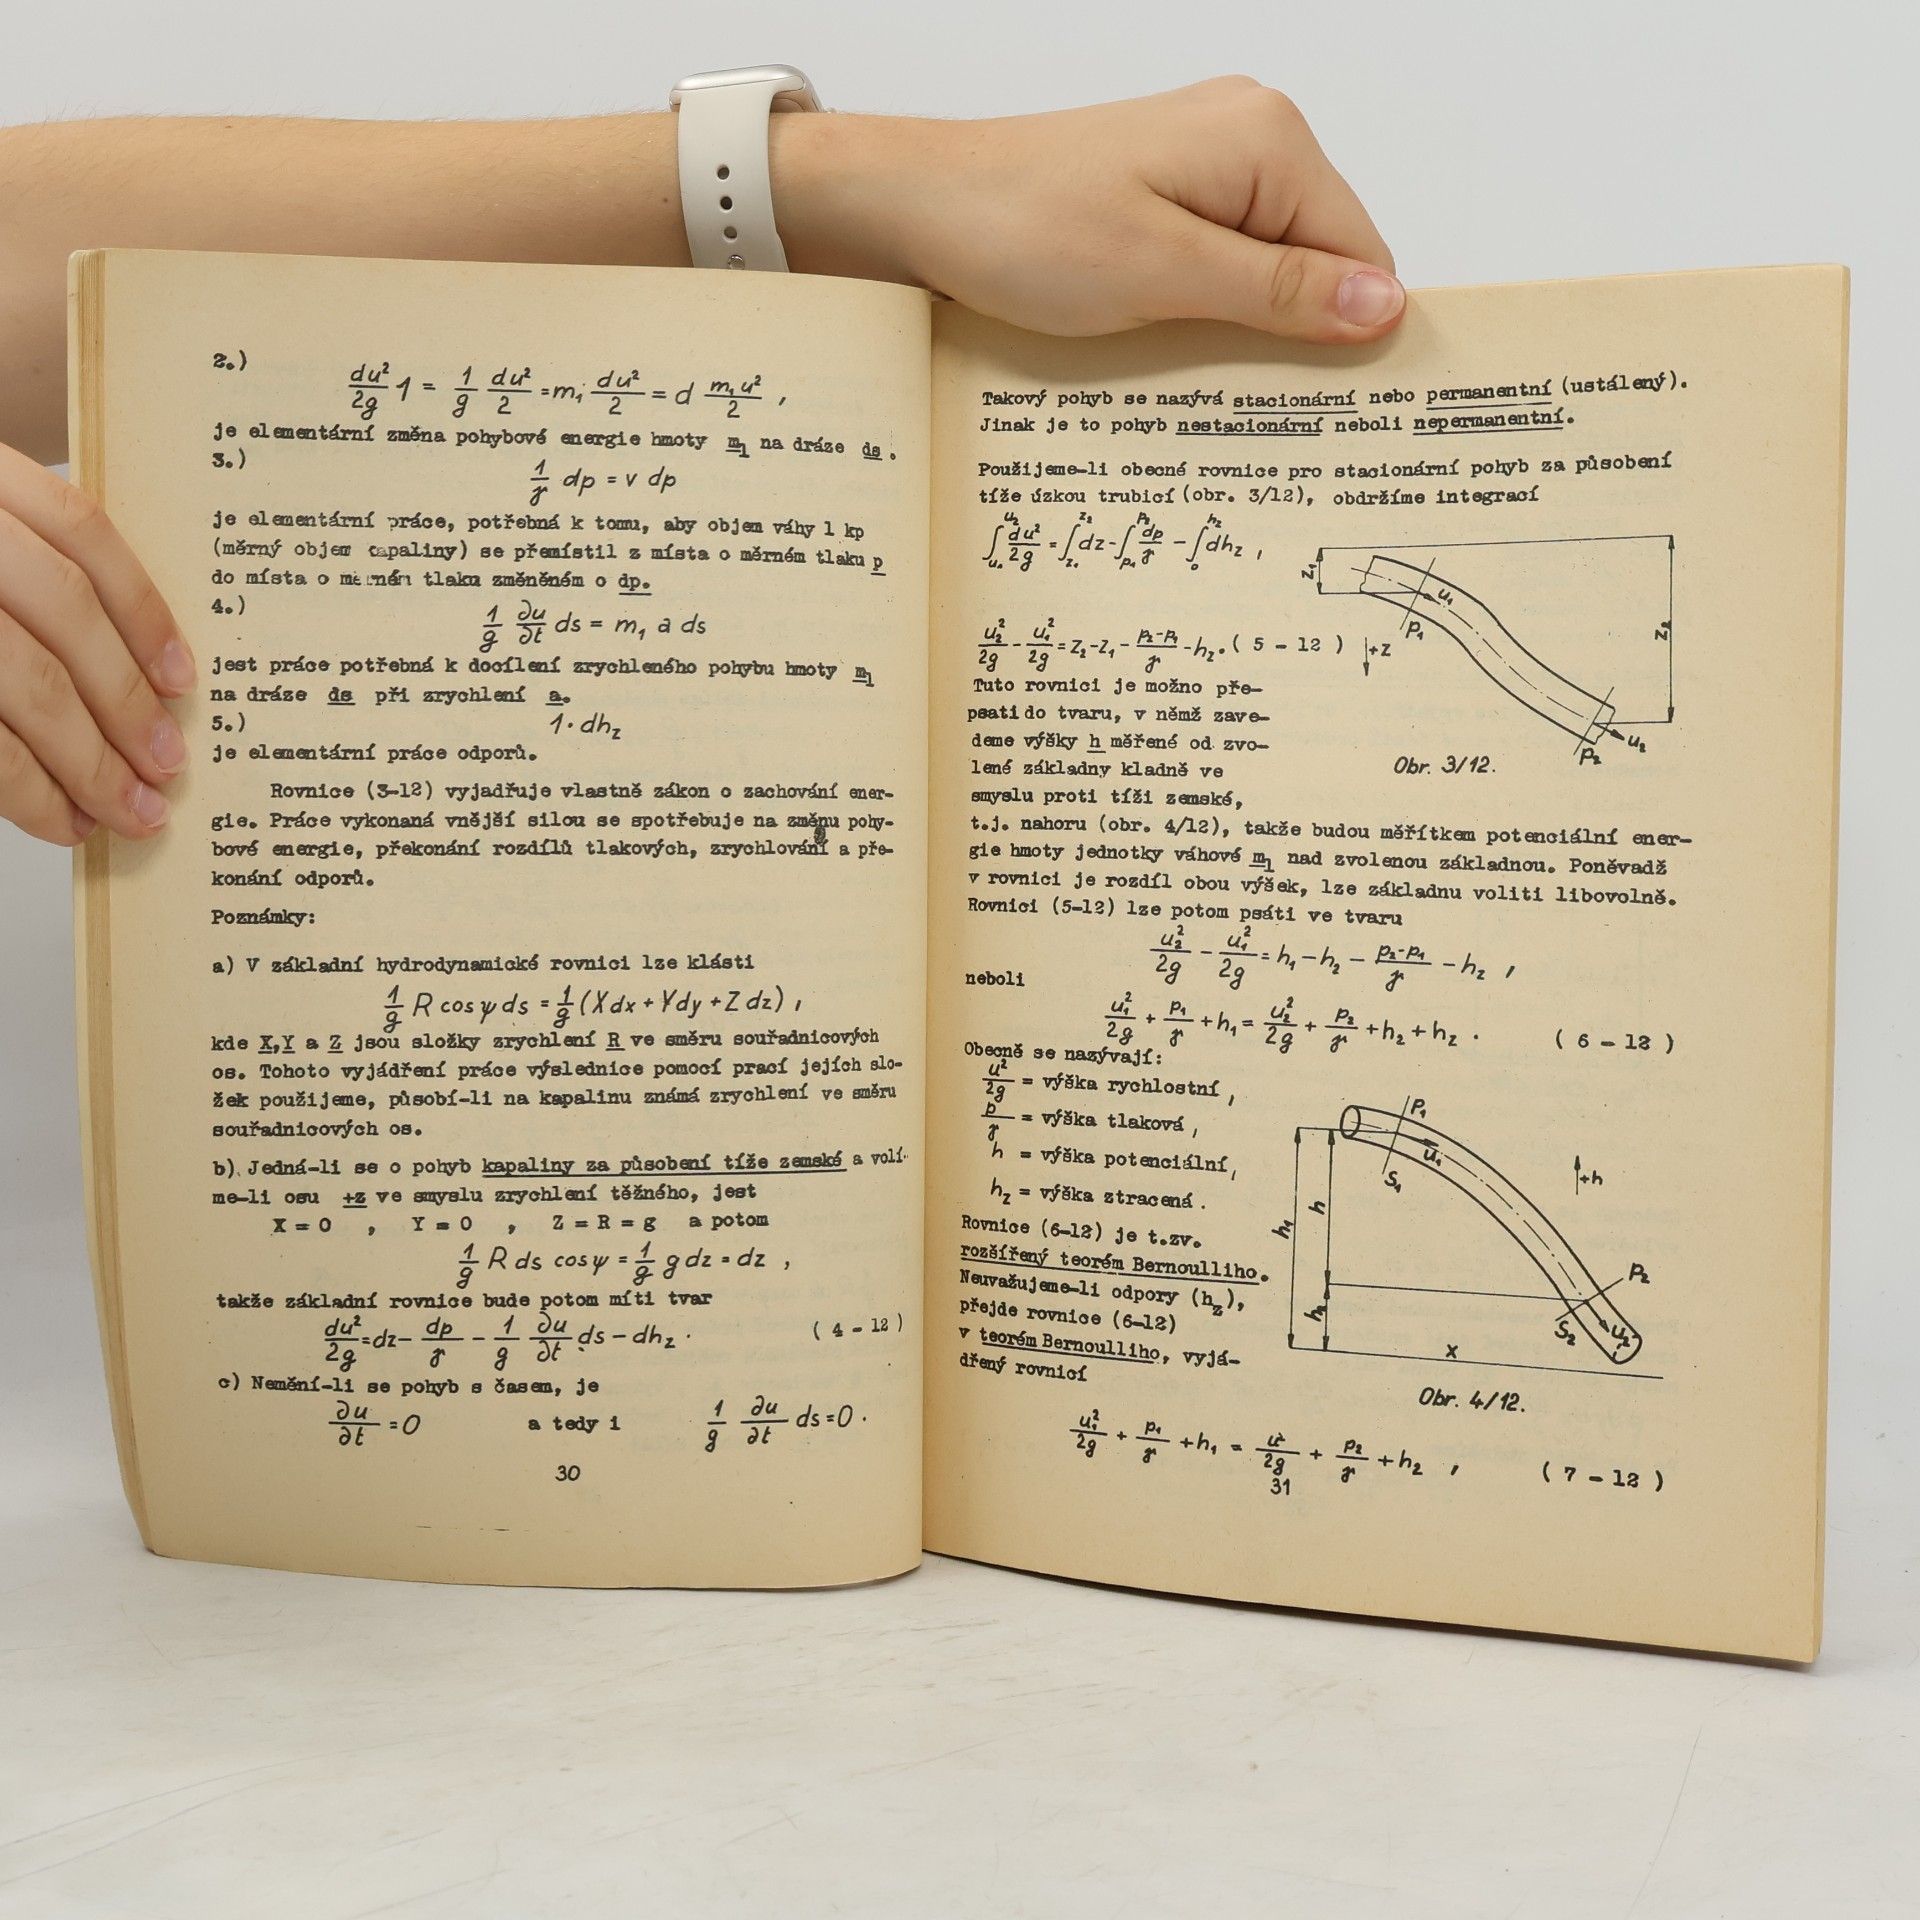 2.)
du²/2g 1 = 1/g du²/2 = m₁ du²/2 = d m₁u²/2 ,
je elementární změna pohybové energie hmoty m₁ na dráze ds.
3.)
1/γ dp = v dp
je elementární práce, potřebná k tomu, aby objem váhy 1 kp
(měrný objem kapaliny) se přemístil z místa o měrném tlaku p
do místa o měrném tlaku změněném o dp.
4.)
1/g ∂u/∂t ds = m₁ a ds
jest práce potřebná k docílení zrychleného pohybu hmoty m₁
na dráze ds při zrychlení a.
5.) 1·dh_z
je elementární práce odporů.
Rovnice (3-12) vyjadřuje vlastně zákon o zachování ener-
gie. Práce vykonaná vnější silou se spotřebuje na změnu pohy-
bové energie, překonání rozdílů tlakových, zrychlování a pře-
konání odporů.
Poznámky:
a) V základní hydrodynamické rovnici lze klásti
1/g R cos ψ ds = 1/g (X dx + Y dy + Z dz) ,
kde X,Y a Z jsou složky zrychlení R ve směru souřadnicových
os. Tohoto vyjádření práce výslednice pomocí prací jejích slo-
žek použijeme, působí-li na kapalinu známá zrychlení ve směru
souřadnicových os.
b) Jedná-li se o pohyb kapaliny za působení tíže zemské a volí-
me-li osu +z ve smyslu zrychlení těžného, jest
X = 0 , Y = 0 , Z = R = g a potom
1/g R ds cos ψ = 1/g g dz = dz ,
takže základní rovnice bude potom míti tvar
du²/2g = dz - dp/γ - 1/g ∂u/∂t ds - dh_z . ( 4 - 12 )
c) Nemění-li se pohyb s časem, je
∂u/∂t = 0 a tedy i 1/g ∂u/∂t ds = 0 .
30
Takový pohyb se nazývá stacionární nebo permanentní (ustálený).
Jinak je to pohyb nestacionární neboli nepermanentní.
Použijeme-li obecné rovnice pro stacionární pohyb za působení
tíže úzkou trubicí (obr. 3/12), obdržíme integrací
∫_{u₁}^{u₂} du²/2g = ∫_{z₁}^{z₂} dz - ∫_{p₁}^{p₂} dp/γ - ∫_0^{h_z} dh_z ,
u₂²/2g - u₁²/2g = z₂ - z₁ - p₂-p₁/γ - h_z . ( 5 - 12 )
z₁
u₁
p₁
+z
z₂
u₂
p₂
Obr. 3/12.
Tuto rovnici je možno pře-
psati do tvaru, v němž zave-
deme výšky h měřené od zvo-
lené základny kladně ve
smyslu proti tíži zemské,
t.j. nahoru (obr. 4/12), takže budou měřítkem potenciální ener-
gie hmoty jednotky váhové m₁ nad zvolenou základnou. Poněvadž
v rovnici je rozdíl obou výšek, lze základnu voliti libovolně.
Rovnici (5-12) lze potom psáti ve tvaru
u₂²/2g - u₁²/2g = h₁ - h₂ - p₂-p₁/γ - h_z ,
neboli
u₁²/2g + p₁/γ + h₁ = u₂²/2g + p₂/γ + h₂ + h_z . ( 6 - 12 )
Obecně se nazývají:
u²/2g = výška rychlostní ,
p/γ = výška tlaková ,
h = výška potenciální,
h_z = výška ztracená .
Rovnice (6-12) je t.zv.
rozšířený teorém Bernoulliho.
Neuvažujeme-li odpory (h_z),
přejde rovnice (6-12)
v teorém Bernoulliho, vyjá-
dřený rovnicí
p₁
u₁
S₁
+h
h₁
h
h₂
p₂
S₂
u₂
x
Obr. 4/12.
u₁²/2g + p₁/γ + h₁ = u²/2g + p₂/γ + h₂ , ( 7 - 12 )
31